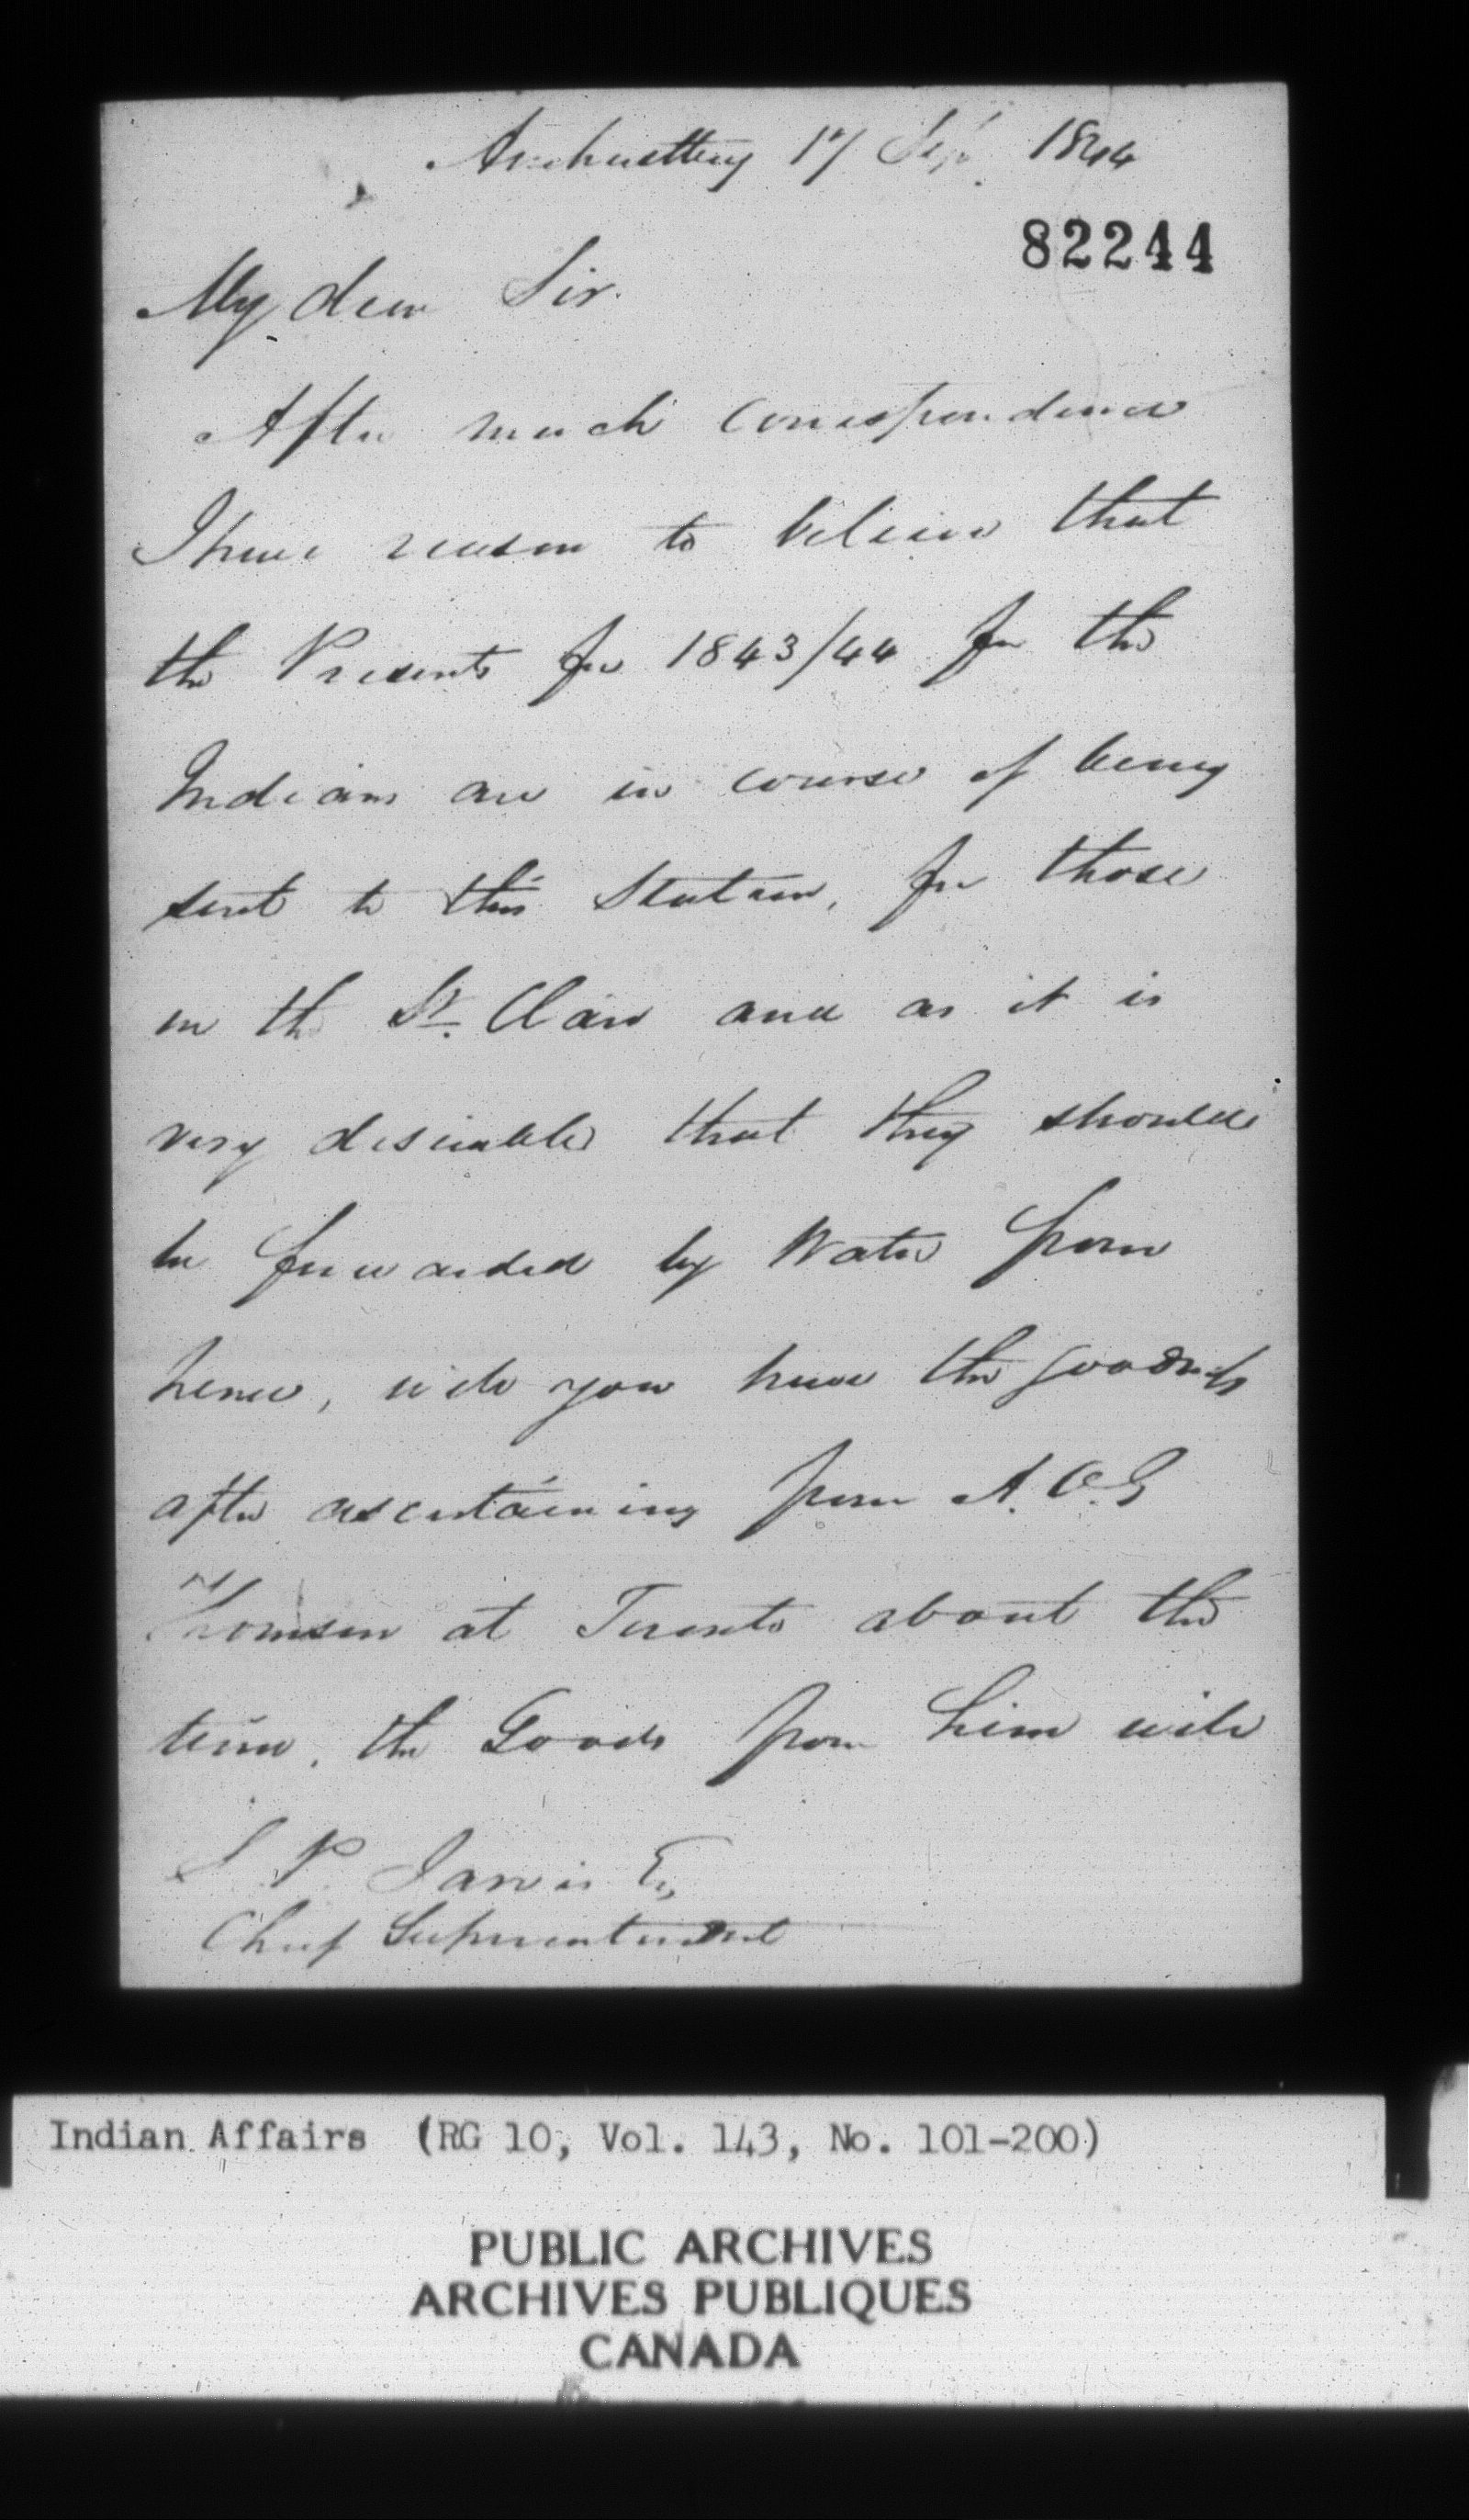 Amherstburg 17 Sept 1844
82244
My dear Sir.
After much correspondence
I have reason to believe that
the Presents for 1843/44 for the
Indians are in course of being
sent to this Station, for those
on the St. Clair and as it is
very desirable that they should
be forwarded by Water from
hence, will you have the goodness
after ascertaining from A.C.G
Thomson at Toronto about the
time, the Goods from him will
S P Jarvis Esq
Chief Superintendent
Indian Affairs (RG 10, Vol. 143, No. 101-200)
PUBLIC ARCHIVES
ARCHIVES PUBLIQUES
CANADA